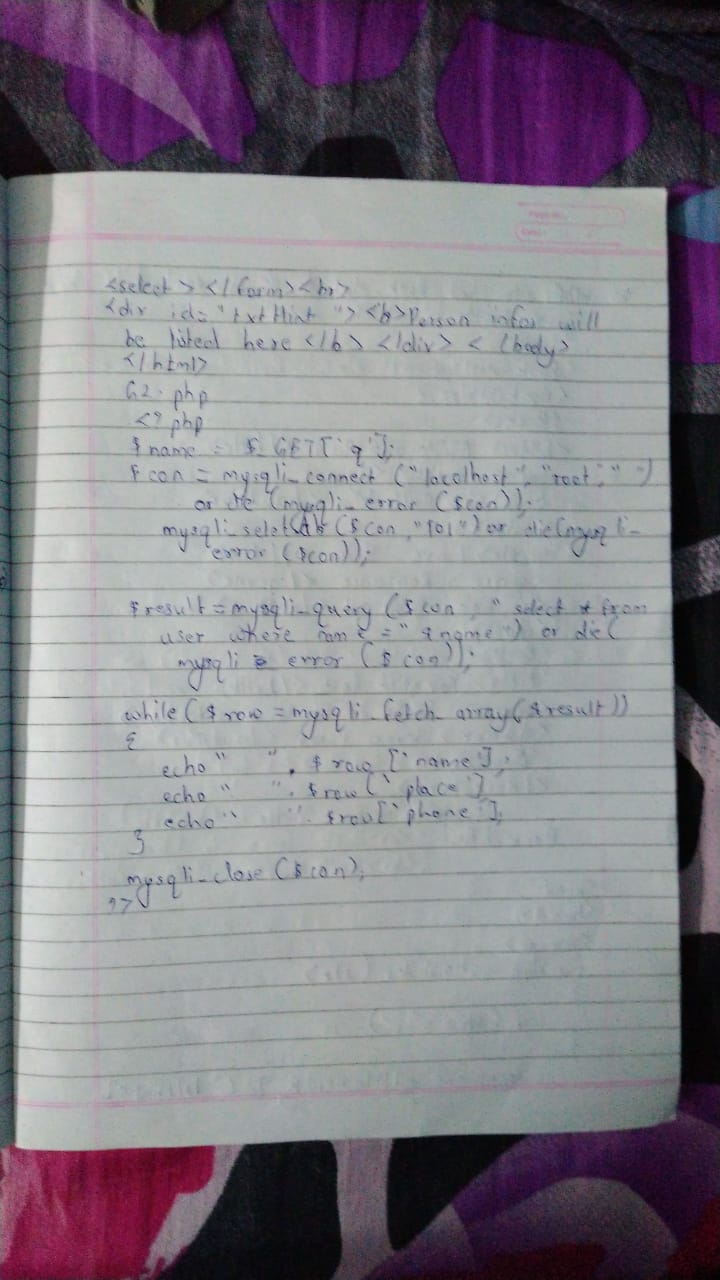 <select> </form><br>
<div id="txtHint"><b>Person infor will
be listed here </b> </div> < /body>
</html>
G2.php
<?php
$name = $_GET['q'];
$con = mysqli_connect ("localhost", "root"," ")
or die (mysqli_error ($con));
mysqli_seletdb ($con,"101") or die(mysqli_
error ($con));
$result = mysqli_query ($con , " select * from
user where name =" $name") or die(
mysqli error ($con));
while ($row = mysqli_fetch_array($result))
{
echo " ". $row ['name'];
echo " ". $row ['place']
echo " ". $row['phone'];
}
mysqli_close ($con);
?>